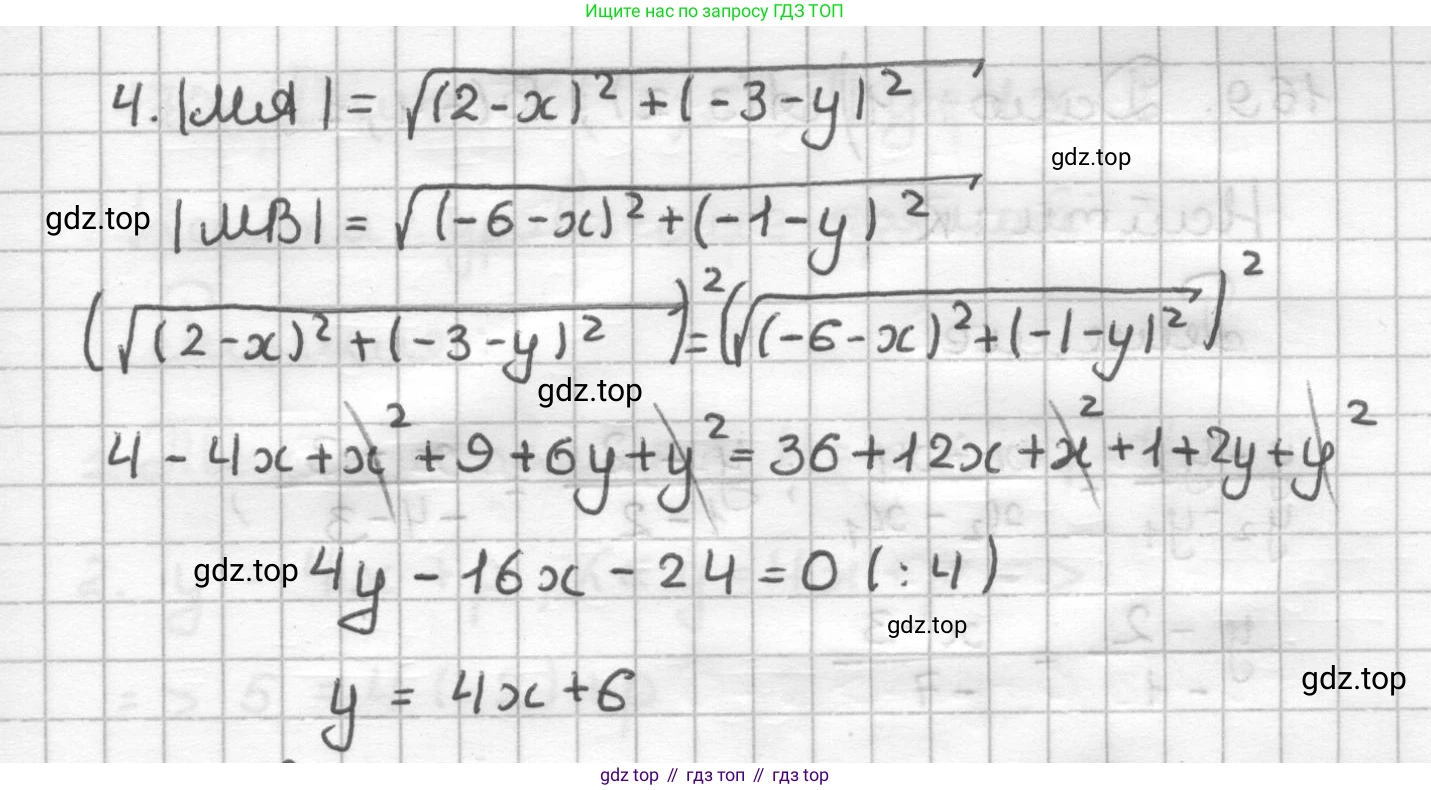 Ищите нас по запросу ГДЗ ТОП
4. |MA| = √((2-x)² + (-3-y)²)
gdz.top
gdz.top |MB| = √((-6-x)² + (-1-y)²)
(√((2-x)² + (-3-y)²))² = (√((-6-x)² + (-1-y)²))²
gdz.top
4 - 4x + x² + 9 + 6y + y² = 36 + 12x + x² + 1 + 2y + y²
gdz.top 4y - 16x - 24 = 0 (:4)
gdz.top
y = 4x + 6
gdz.top
gdz top // гдз топ // gdz top